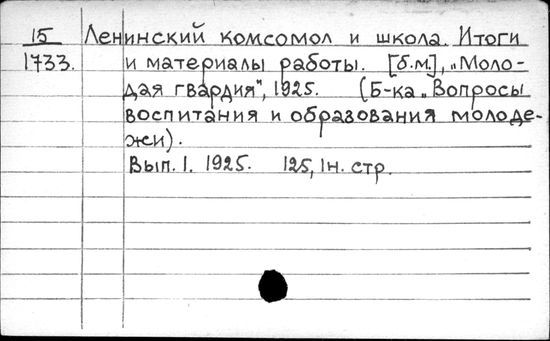 15 Ленинский комсомол и школа. Итоги
1733. и материалы работы. [б.м.], „Моло-
дая гвардия", 1925. (Б-ка „Вопросы
воспитания и образования молоде-
жи).
Вып. I. 1925. 125, 1н. стр.